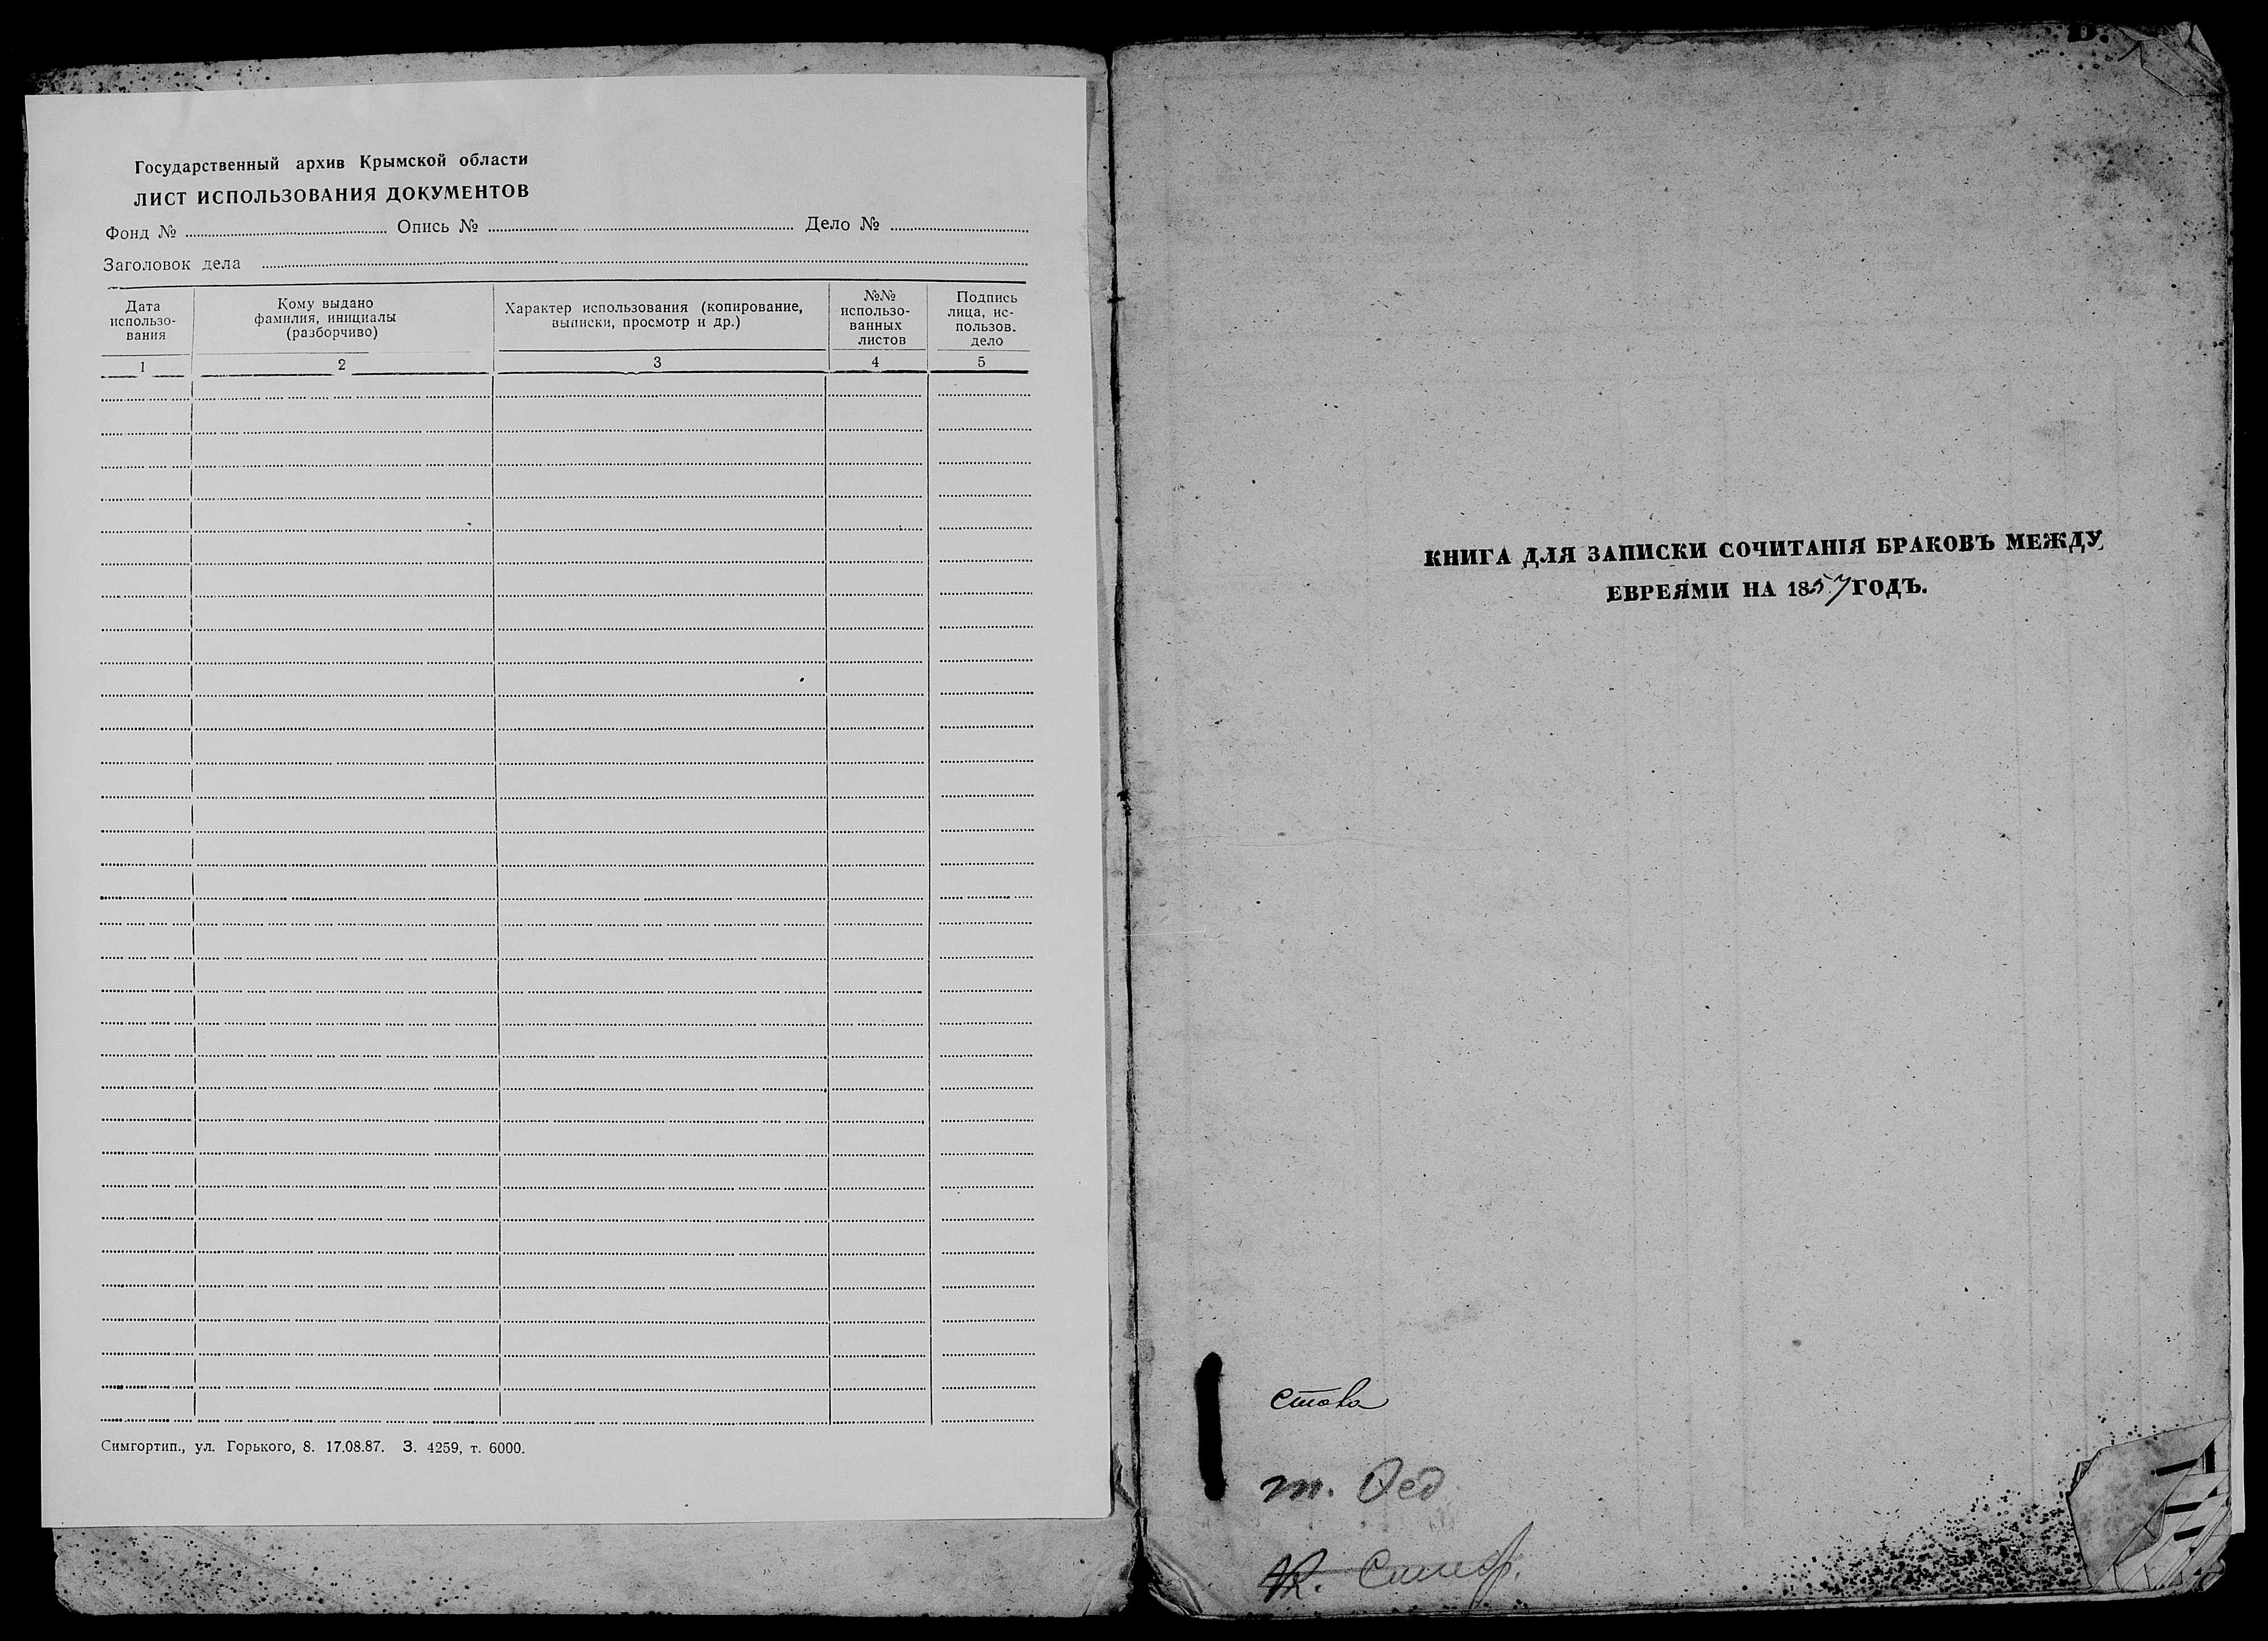 Государственный архив Крымской области
ЛИСТ ИСПОЛЬЗОВАНИЯ ДОКУМЕНТОВ
Фонд № Опись № Дело №
Заголовок дела
Дата использо-вания
Кому выдано
фамилия, инициалы
(разборчиво)
Характер использования (копирование,
выписки, просмотр и др.)
№№
использо-
ванных
листов
Подпись
лица, ис-
пользов.
дело
1 2 3 4 5
Симгортип., ул. Горького, 8. 17.08.87. З. 4259, т. 6000.
КНИГА ДЛЯ ЗАПИСКИ СОЧИТАНІЯ БРАКОВЪ МЕЖДУ
ЕВРЕЯМИ НА 1857 ГОДЪ.
т.